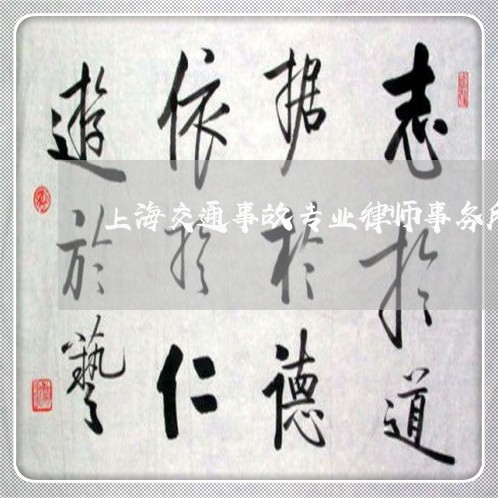 志於道
据於德
依於仁
遊於藝
上海交通事故专业律师事务